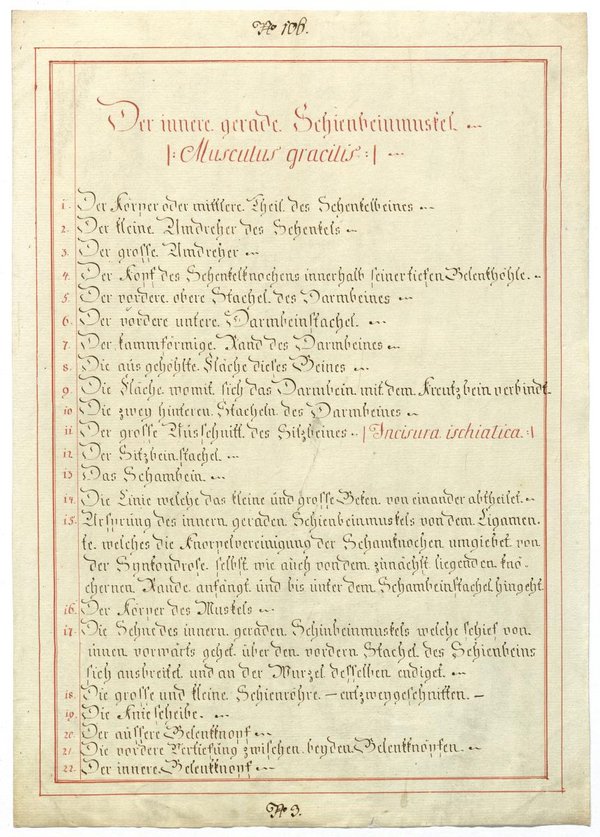 No 106.
Der innere gerade Schienbeinmuskel.
|: Musculus gracilis :|
1. Der Körper oder mittlere Theil des Schenkelbeines
2. Der kleine Umdreher des Schenkels
3. Der grosse Umdreher
4. Der Kopf des Schenkelknochens innerhalb seiner tiefen Gelenkhöhle.
5. Der vordere obere Stachel des Darmbeines
6. Der vordere untere Darmbeinstachel.
7. Der kammförmige Rand des Darmbeines
8. Die aus gehöhlte Fläche dieses Beines
9. Die Fläche womit sich das Darmbein mit dem Kreutzbein verbindt
10. Die zwey hinteren Stacheln des Darmbeines
11. Der grosse Ausschnitt des Sitzbeines |: Incisura ischiatica :|
12. Der Sitzbeinstachel.
13. Das Schambein.
14. Die Linie welche das kleine und grosse Beken von einander abtheilet.
15. Ursprung des innern geraden Schienbeinmuskels von dem Ligamen-
te welches die Knorpelvereinigung der Schamknochen umgiebet von
der Synkondrose selbst wie auch von dem zunächst liegenden knö-
chernen Rande anfängt und bis unter dem Schambeinstachel hingeht
16. Der Körper des Muskels
17. Die Sehne des innern geraden Schinbeinmuskels welche schief von
innen vorwärts gehet über den vordern Stachel des Schienbeins
sich ausbreitet und an der Wurzel desselben endiget.
18. Die grosse und kleine Schienröhre — entzweygeschnitten. —
19. Die Kniescheibe.
20. Der äussere Gelenkknopf
21. Die vordere Vertiefung zwischen beyden Gelenkknöpfen.
22. Der innere Gelenkknopf
No 3.